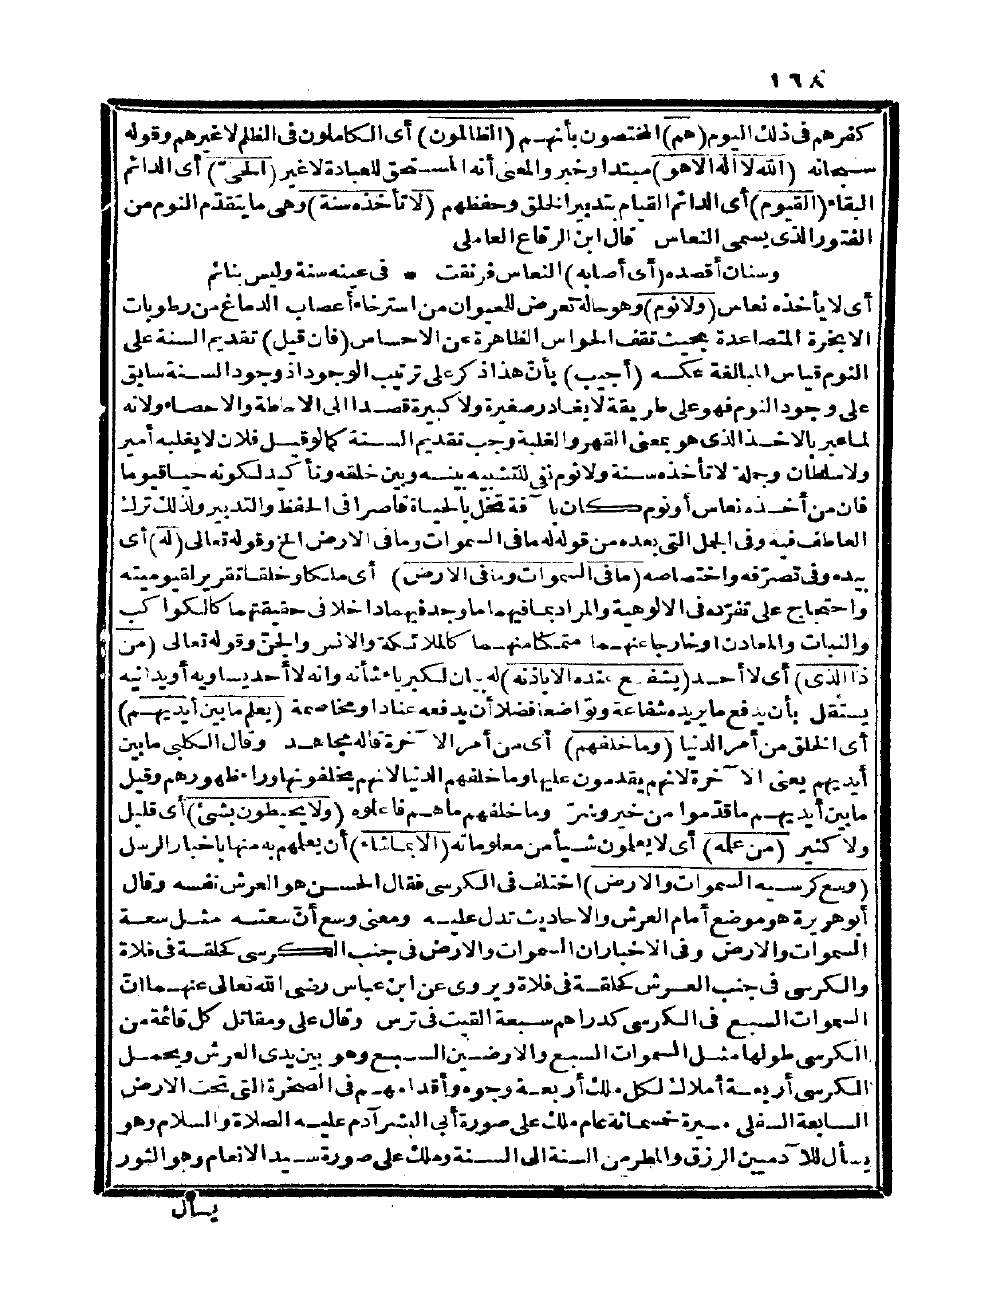 ١٦٨
كفرهم فى ذلك اليوم (هم) المختصون بأنهم (الظالمون) أى الكاملون فى الظلم لا غيرهم وقوله
سبحانه (الله لا اله الا هو) مبتدا وخبر والمعنى أنه المستحق للعبادة لا غير (الحىّ) أى الدائم
البقاء (القيوم) أى الدائم القيام بتدبير الخلق وحفظهم (لا تأخذه سنة) وهى ما يتقدّم النوم من
الفتور الذى يسمى النعاس قال ابن الرقاع العاملى
وسنان أقصده (أى أصابه) النعاس فرنقت * فى عينه سنة وليس بنائم
أى لا يأخذه نعاس (ولا نوم) وهو حالة تعرض للحيوان من استرخاء أعصاب الدماغ من رطوبات
الابخرة المتصاعدة بحيث تقف الحواس الظاهرة عن الاحساس (فان قيل) تقديم السنة على
النوم قياس المبالغة عكسه (أجيب) بأن هذا ذكر على ترتيب الوجود اذ وجود السنة سابق
على وجود النوم فهو على طريقة لا يغادر صغيرة ولا كبيرة قصدا الى الاحاطة والاحصاء ولانه
لما عبر بالاخذ الذى هو بمعنى القهر والغلبة وجب تقديم السنة كما لو قيل فلان لا يغلبه أمير
ولا سلطان وجملة لا تأخذه سنة ولا نوم نفى للتشبيه بينه وبين خلقه وتأكيد لكونه حيا قيوما
فان من أخذه نعاس أو نوم كان بآفة تخل بالحياة قاصرا فى الحفظ والتدبير ولذلك ترك
العاطف فيه وفى الجمل التى بعده من قوله له ما فى السموات وما فى الارض الخ وقوله تعالى (له) أى
بيده وفى تصرّفه واختصاصه (ما فى السموات وما فى الارض) أى ملكا وخلقا تقرير لقيوميته
واحتجاج على تفرّده فى الالوهية والمراد بما فيهما ما وجد فيهما داخلا فى حقيقتهما كالكواكب
والنبات والمعادن او خارجا عنهما متمكنا منهما كالملائكة والانس والجنّ وقوله تعالى (من
ذا الذى) أى لا أحد (يشفع عنده الا باذنه) له بيان لكبرياء شأنه وانه لا أحد يساويه أو يدانيه
يستقل بأن يدفع ما يريده شفاعة وتواضعا فضلا أن يدفعه عنادا ومخاصمة (يعلم ما بين أيديهم)
أى الخلق من أمر الدنيا (وما خلفهم) أى من أمر الآخرة قاله مجاهد وقال الكلبى ما بين
أيديهم يعنى الآخرة لانهم يقدمون عليها وما خلفهم الدنيا لانهم يخلفونها وراء ظهورهم وقيل
ما بين أيديهم ما قدّموا من خير وشرّ وما خلفهم ما هم فاعلوه (ولا يحيطون بشئ) أى قليل
ولا كثير (من علمه) أى لا يعلمون شيأ من معلوماته (الا بما شاء) أن يعلمهم به منها باخبار الرسل
(وسع كرسيه السموات والارض) اختلف فى الكرسى فقال الحسن هو العرش نفسه وقال
أبو هريرة هو موضع أمام العرش والاحاديث تدل عليه ومعنى وسع أنّ سعته مثل سعة
السموات والارض وفى الاخبار ان السموات والارض فى جنب الكرسى كحلقة فى فلاة
والكرسى فى جنب العرش كحلقة فى فلاة ويروى عن ابن عباس رضى الله تعالى عنهما انّ
السموات السبع فى الكرسى كدراهم سبعة القيت فى ترس وقال على ومقاتل كل قائمة من
الكرسى طولها مثل السموات السبع والارضين السبع وهو بين يدى العرش ويحمل
الكرسى أربعة أملاك لكل ملك أربعة وجوه وأقدامهم فى الصخرة التى تحت الارض
السابعة السفلى مسيرة خمسمائة عام ملك على صورة أبى البشر آدم عليه الصلاة والسلام وهو
يسأل للآدميين الرزق والمطر من السنة الى السنة وملك على صورة سيد الانعام وهو الثور
يسأل